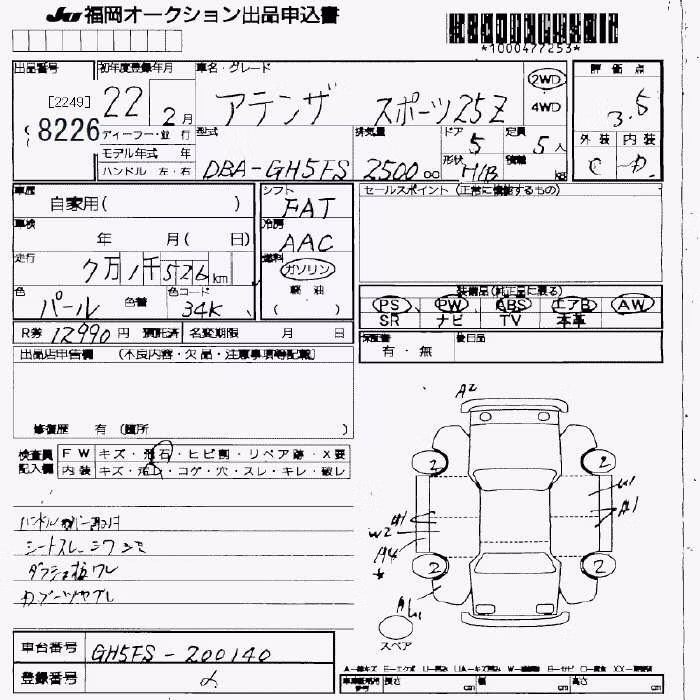 JU 福岡オークション出品申込書
*1000477253*
出品番号 初年度登録年月 車名・グレード 評価点
[2249] 8226
22年 2月
アテンザ スポーツ25Z
2WD 4WD
3.5
ディーラー・並行
モデル年式 年
ハンドル 左・右
型式 DBA-GH5FS
排気量 2500 cc
ドア 5
形状 H/B
定員 5人
積載 kg
外装 内装
C D
車歴 自家用( )
シフト FAT
セールスポイント(正常に機能するもの)
車検 年 月( 日)
冷房 AAC
走行 7万1千526km
燃料 ガソリン
軽油
( )
色 パール 色替 色コード 34K
装備品(純正品に限る)
PS PW ABS エアB AW
SR ナビ TV 本革
R券 12990円 預託済 名変期限 月 日
保証書 有・無 後日品
出品店申告欄 (不良内容・欠品・注意事項等記載)
修復歴 有(箇所 )
検査員記入欄 FW キズ・飛石・ヒビ割・リペア跡・X要
内装 キズ・汚れ・コゲ・穴・スレ・キレ・破レ
シートスレ シワ シミ
A2
2 2
A1 W2 A4
A1
2 2
スペア
車台番号 GH5FS-200140
登録番号
車両積載用番号 長さ cm 幅 cm 高さ cm